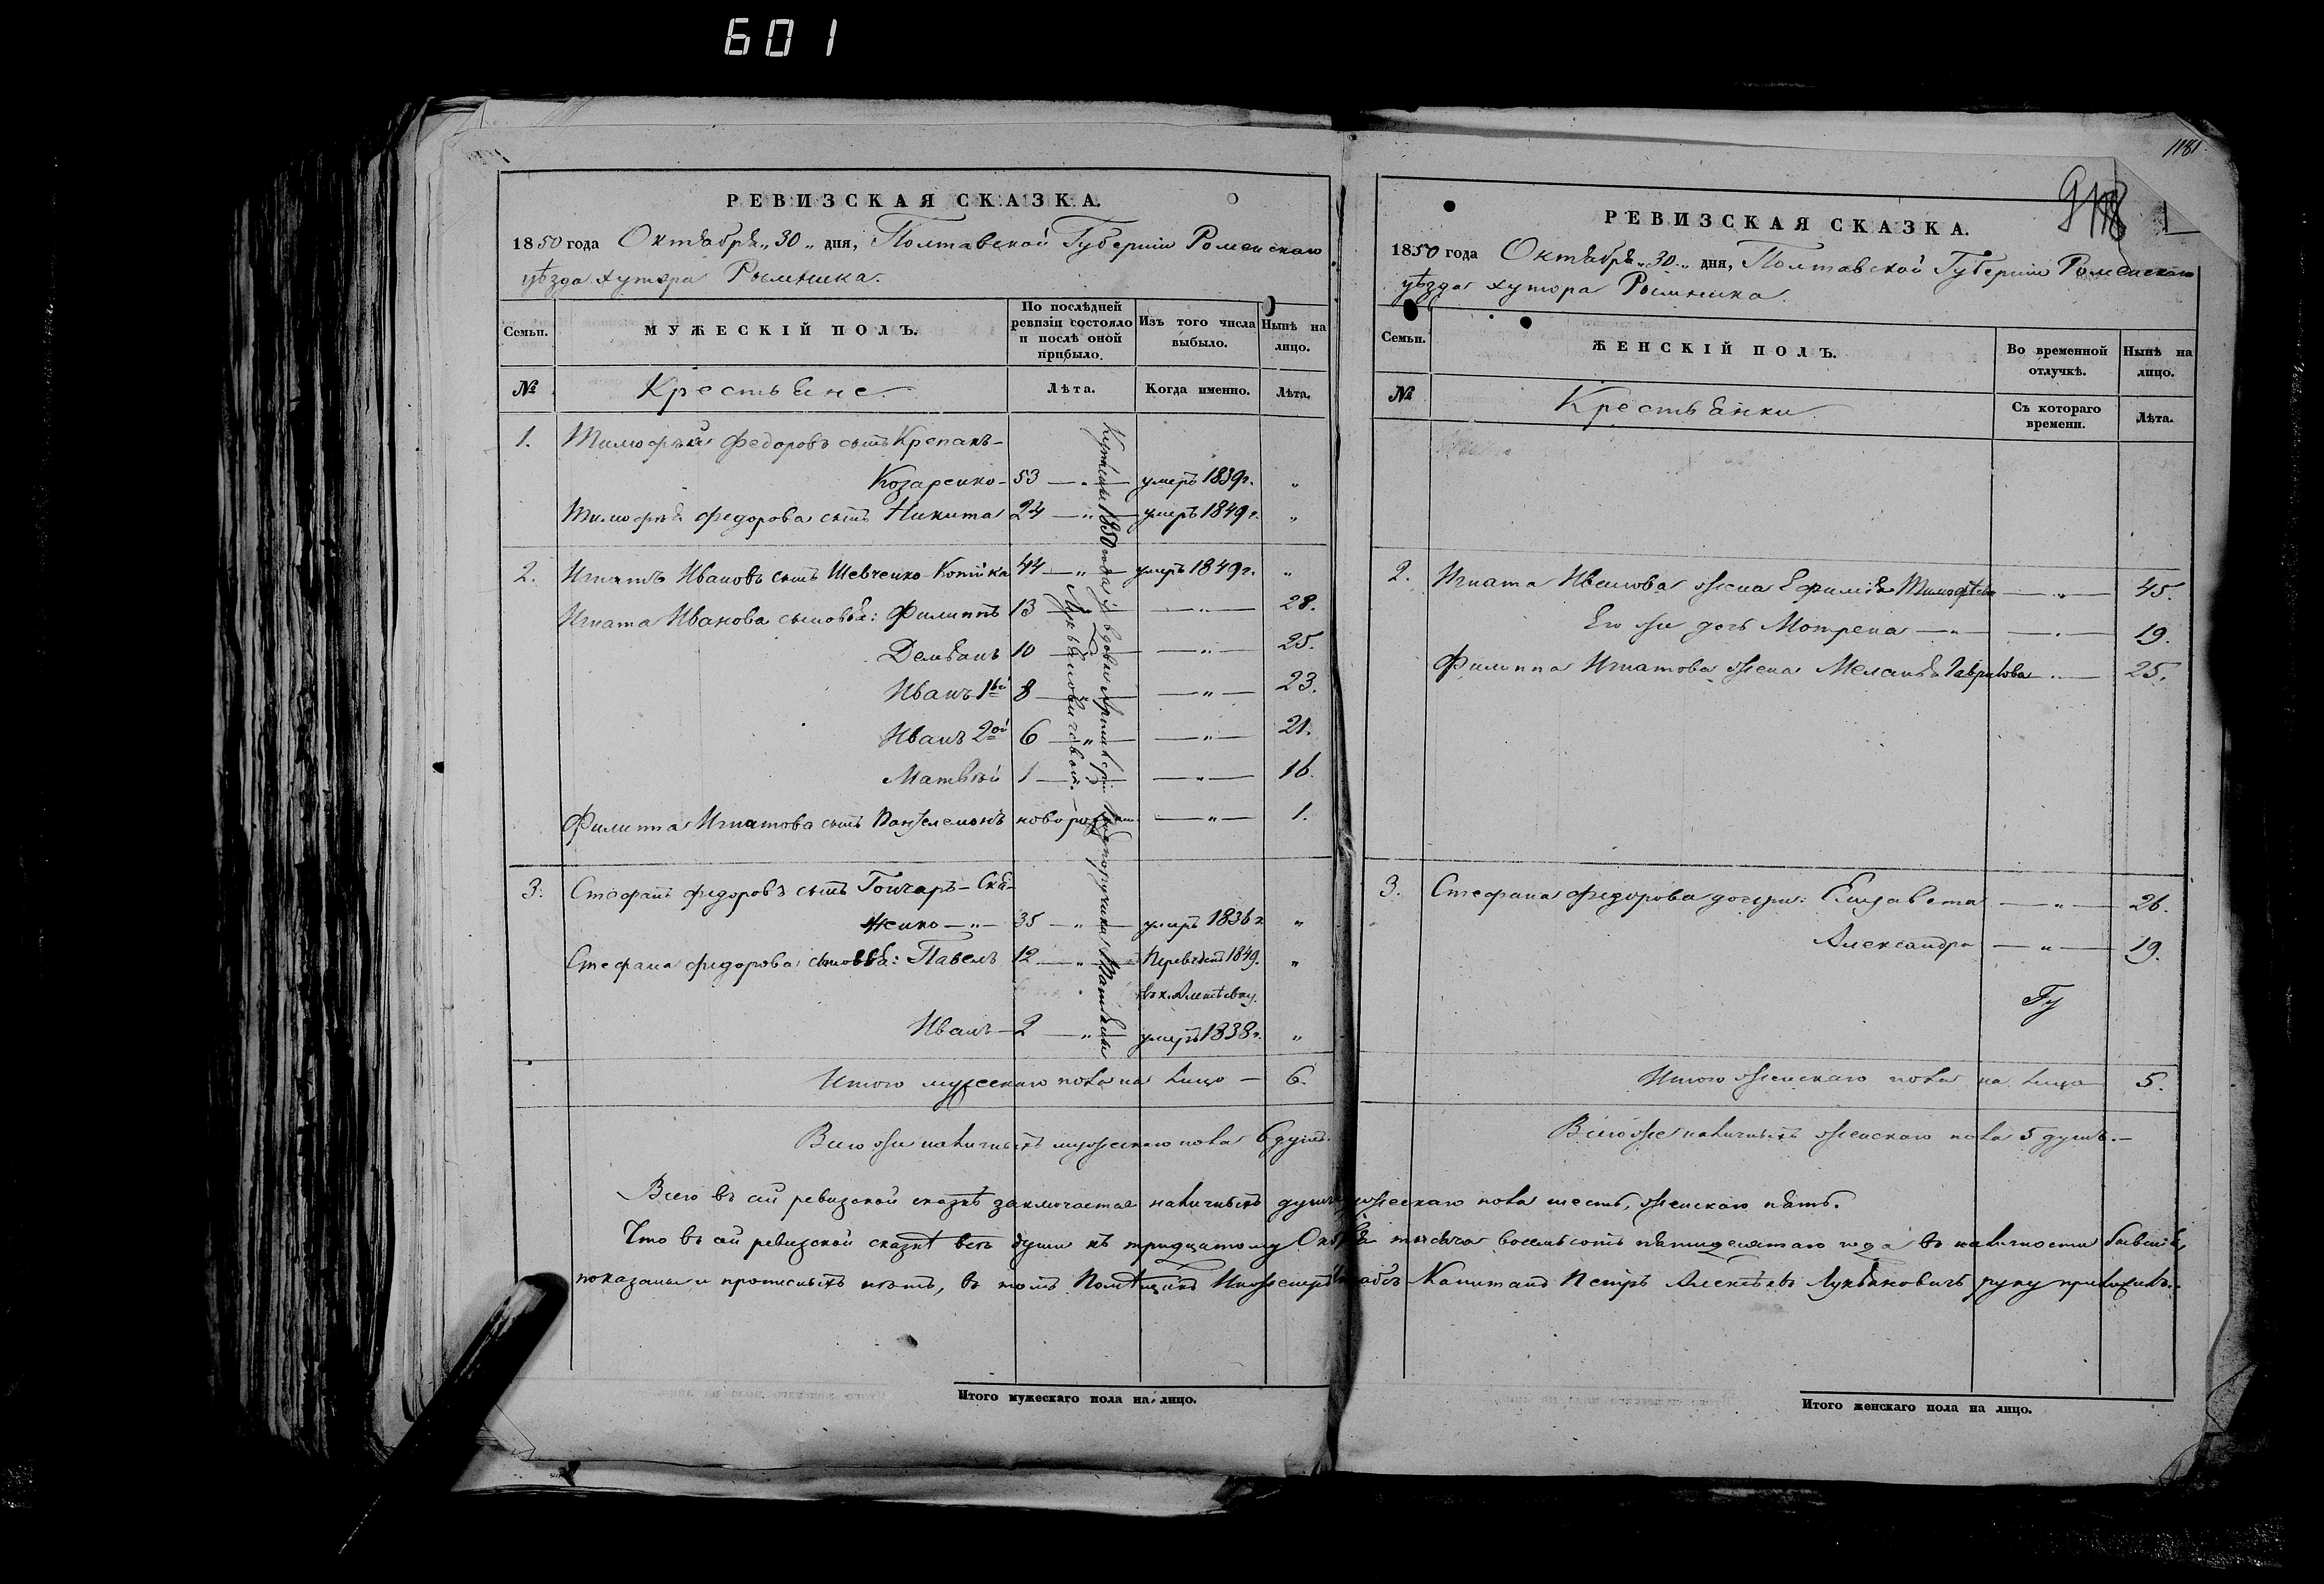 601
1181
РЕВИЗСКАЯ СКАЗКА.
1850 года Октября „30„ дня, Полтавской Губерніи Роменскаго
уѣзда хутора Рымника.
Семьи.
МУЖЕСКІЙ ПОЛЪ.
По послѣдней ревизіи состояло и послѣ оной прибыло.
Изъ того числа выбыло.
Нынѣ на лицо.
№
Крестьяне
Лѣта.
Когда именно.
Лѣта.
1. Тимофѣй Федоровъ сынъ Крепакъ-
Козаренко - 53 — „ — умеръ 1839г. „
Тимофѣя Федорова сынъ Никита 24 — „ — умеръ 1849г. „
2. Игнатъ Ивановъ сынъ Шевченко-Котика 44 — „ — умеръ 1849г. „
Игната Иванова сыновья: Филиппъ 13 — „ — 28.
Демьянъ 10 — „ — 25.
Иванъ 1ый 8 — „ — 23.
Иванъ 2ой 6 — „ — „ — 21.
Матвѣй 1 — „ — 16.
Филиппа Игнатова сынъ Пантелемонъ новорожден. — „ — 1.
3. Стефанъ Федоровъ сынъ Гончаръ-
женко — „ — 35 — „ — умеръ 1836г. „
Стефана Федорова сыновья: Павелъ 12 — „ — Переведенъ 1849. „
Иванъ — 2 — „ — умеръ 1838г. „
Куплены 1850 года у вдовы подпоручика
Лукьяновичевой.
Итого мужескаго пола на лицо — 6.
Всего же наличныхъ мужескаго пола 6 душъ.
РЕВИЗСКАЯ СКАЗКА.
1850 года Октября „30„ дня, Полтавской Губерніи Роменскаго
уѣзда хутора Рымника.
Семьи.
ЖЕНСКІЙ ПОЛЪ.
Во временной отлучкѣ.
Нынѣ на лицо.
№
Крестьянки
Съ котораго времени.
Лѣта.
2. Игната Иванова жена Ефимія Тимофѣева — „ — 45.
Его же дочь Мотрена — „ — — „ — 19.
Филиппа Игнатова жена Меланья Гаврилова — „ — 25.
3. Стефана Федорова дочери: Елизавета — „ — 26.
Александра — „ — 19.
Итого женскаго пола на лицо 5.
Всего же наличныхъ женскаго пола 5 душъ. —
Всего въ сей ревизской сказкѣ заключается наличныхъ душъ мужескаго пола шесть, женскаго пять.
Что въ сей ревизской сказкѣ всѣ души къ тридцатому Октября тысяча восемьсотъ пятидесятаго года въ наличности бывшія,
показаны и прописныхъ нѣтъ, въ томъ Помѣщикъ Инженеръ Штабсъ Капитанъ Петръ Алексѣевъ Лукьяновичъ руку приложилъ.
Итого мужескаго пола на лицо.
Итого женскаго пола на лицо.